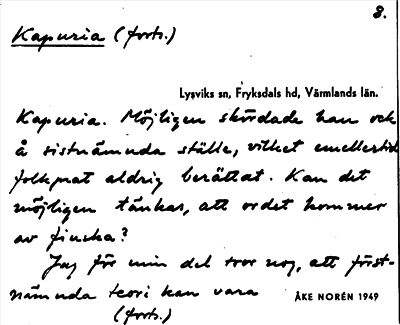 8.
Kapuria (forts.)
Lysviks sn, Fryksdals hd, Värmlands län.
Kapuria. Möjligen skördade han och
å sistnämnda ställe, vilket emellertid
folkprat aldrig berättat. Kan det
möjligen tänkas, att ordet kommer
av finska?
Jag för min del tror nog, att först-
nämnda teori kan vara
ÅKE NORÉN 1949
(forts.)